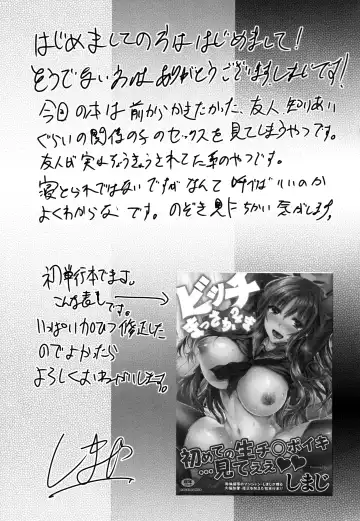 はじめましての方ははじめまして!
そうでない方はありがとうございます!しまじです!
今回の本は前からかきたかった、友人、知りあい
ぐらいの関係の子のセックスを見てしまうやつです。
友人が実はちょうきょうされてた系のやつです。
寝とられではないですがなんて呼べばいいのか
よくわからないです。のぞき見にちかい気がします。
初単行本でます。
こんな表紙です。
いっぱい加ひつ修正した
のでよかったら
よろしくおねがいします。
しまじ
ビッチ
初めての生チ○ポイキ
…見てぇぇ♥♥
しまじ